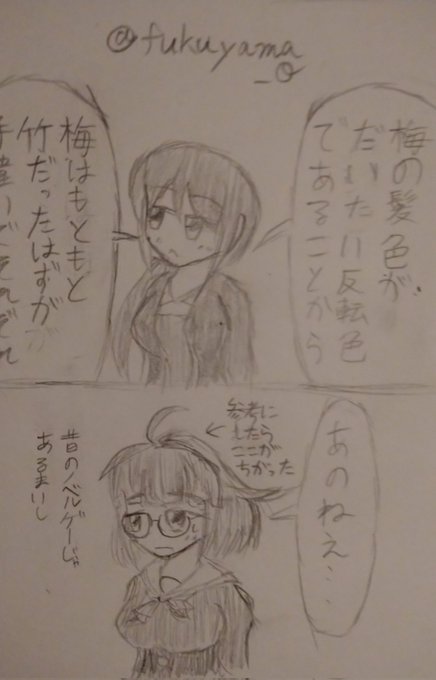 @fukuyama
_O
梅の髪色が
だいたい反転色
であることから
梅はもともと
竹だったはずが
手違いでそれぞれ
あのねえ…
参考に
したら
ここが
ちがった
昔のノベルゲーじゃ
あるまいし